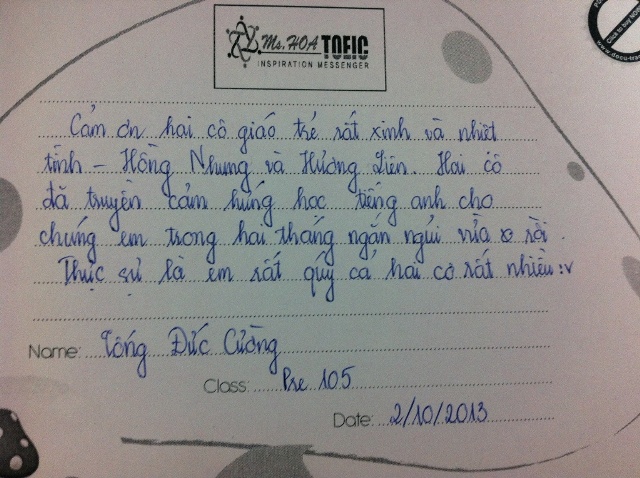 Ms. HOA TOEIC
INSPIRATION MESSENGER
Cảm ơn hai cô giáo trẻ rất xinh và nhiệt
tình – Hồng Nhung và Hương Liên. Hai cô
đã truyền cảm hứng học tiếng anh cho
chúng em trong hai tháng ngắn ngủi vừa rồi.
Thực sự là em rất quý cả hai cô rất nhiều :v
Name: Tống Đức Cường
Class: Pre 105
Date: 2/10/2013